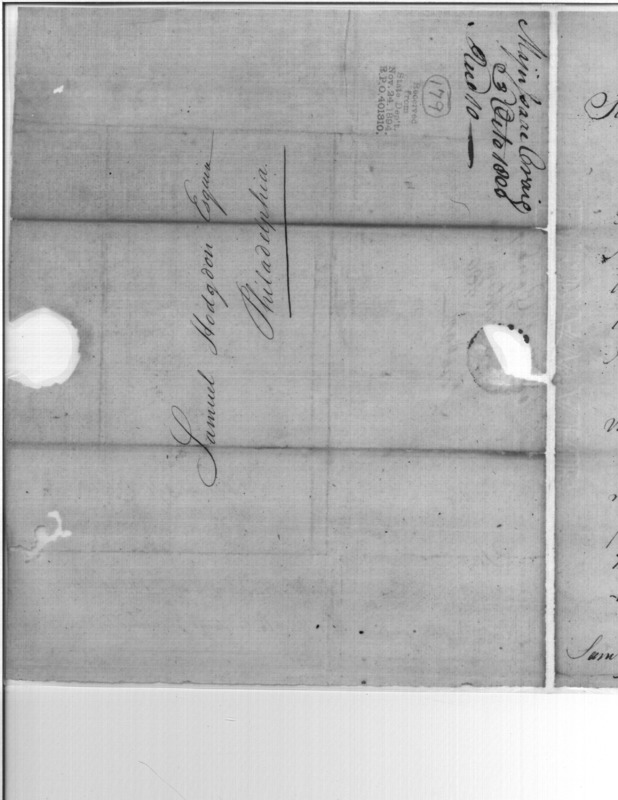 Major Isaac Craig
3 Octo 1800
Recd 10
179
Received
from
State Dept.
Nov. 24, 1894.
R.P.O. 401810.
Samuel Hodgdon Esquire
Philadelphia
Sam